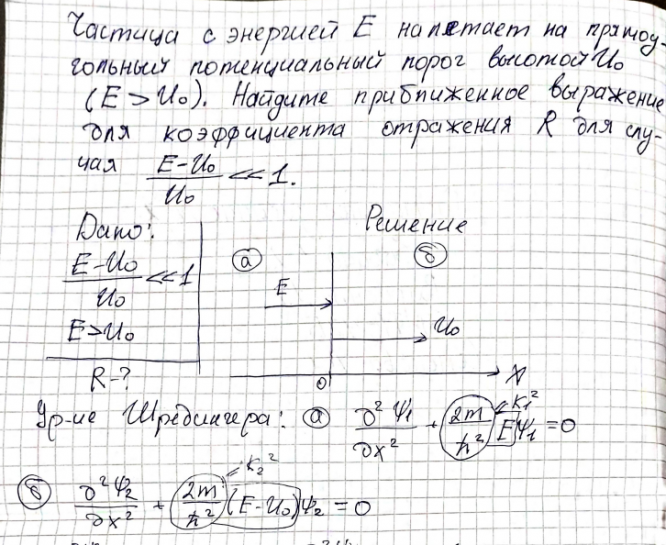 Частица с энергией E налетает на прямоу-
гольный потенциальный порог высотой U₀
(E > U₀). Найдите приближенное выражение
для коэффициента отражения R для слу-
чая (E-U₀)/U₀ << 1.
Дано:
(E-U₀)/U₀ << 1
E>U₀
R-?
Решение
а
б
E
U₀
0
x
Ур-ие Шредингера: а ∂²Ψ₁/∂x² + 2m/ħ² EΨ₁ = 0
k₁²
б ∂²Ψ₂/∂x² + 2m/ħ² (E-U₀)Ψ₂ = 0
k₂²